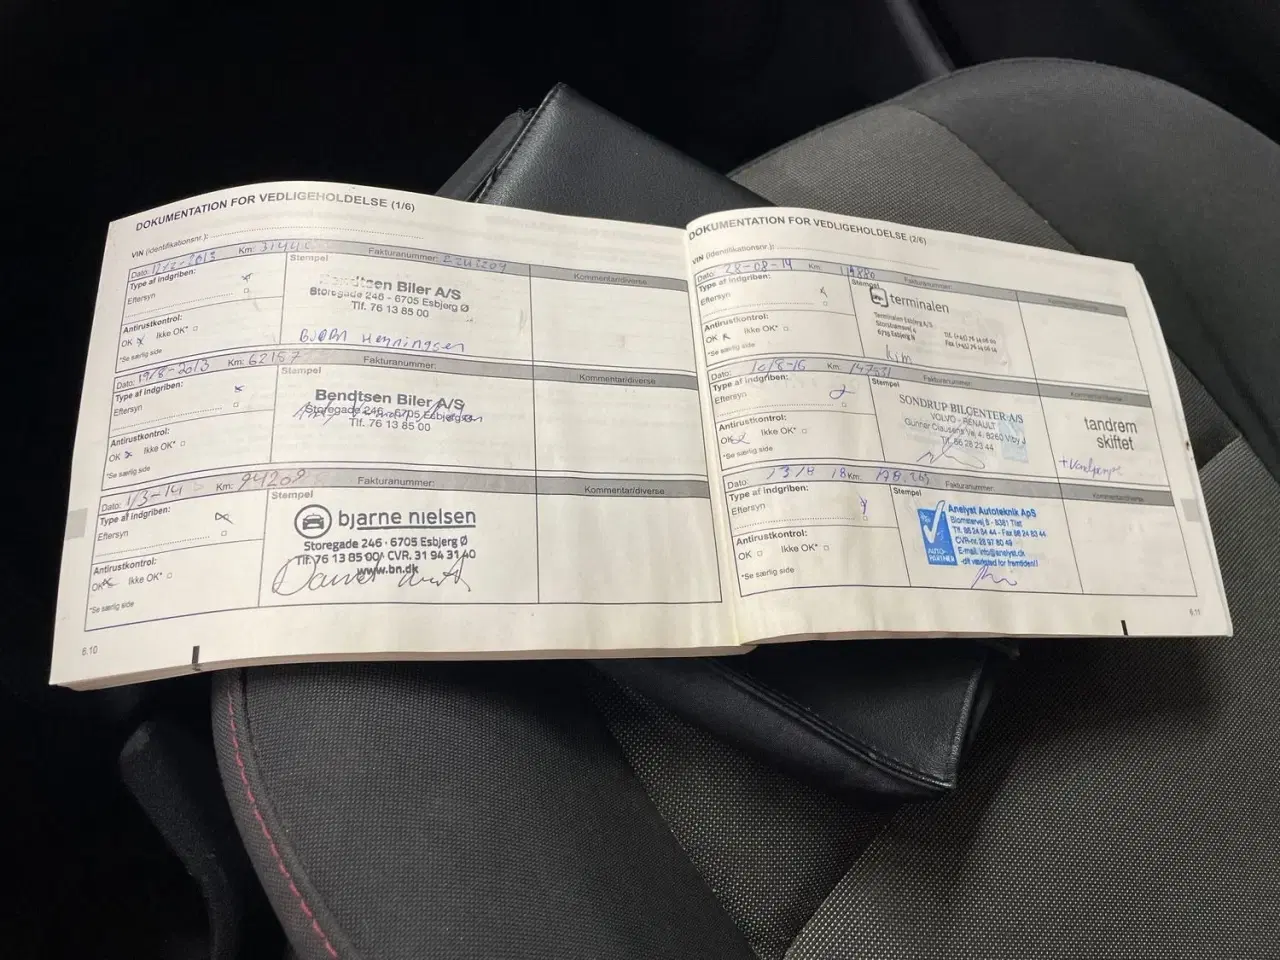 DOKUMENTATION FOR VEDLIGEHOLDELSE (1/6)
VIN (identifikationsnr.):
Dato: 12/2-2013 Km: 31440 Fakturanummer:
Type af indgriben:
Eftersyn
Stempel
Kommentar/diverse
Bendtsen Biler A/S
Storegade 246 - 6705 Esbjerg Ø
Tlf. 76 13 85 00
Antirustkontrol:
OK Ikke OK*
*Se særlig side
Bjørn Henningsen
Dato: 19/8-2013 Km: 62157 Fakturanummer:
Type af indgriben:
Eftersyn
Stempel
Kommentar/diverse
Bendtsen Biler A/S
Storegade 246 - 6705 Esbjerg Ø
Tlf. 76 13 85 00
Antirustkontrol:
OK Ikke OK*
*Se særlig side
Dato: 1/3-14 Km: 94209 Fakturanummer:
Type af indgriben:
Eftersyn
Stempel
Kommentar/diverse
bjarne nielsen
Storegade 246 · 6705 Esbjerg Ø
Tlf. 76 13 85 00 CVR. 31 94 31 40
www.bn.dk
Antirustkontrol:
OK Ikke OK*
*Se særlig side
6.10
DOKUMENTATION FOR VEDLIGEHOLDELSE (2/6)
VIN (identifikationsnr.):
Dato: 28-08-14 Km: 119880 Fakturanummer:
Type af indgriben:
Eftersyn
Stempel
Kommentar/diverse
terminalen
Terminalen Esbjerg A/S
Antirustkontrol:
OK Ikke OK*
*Se særlig side
Kim
Dato: 10/8-16 Km: 147831 Fakturanummer:
Type af indgriben:
Eftersyn
Stempel
Kommentar/diverse
SONDRUP BILCENTER A/S
VOLVO - RENAULT
Gunnar Clausens Vej 4, 8260 Viby J
Tlf. 86 28 23 44
tandrem
skiftet
Antirustkontrol:
OK Ikke OK*
*Se særlig side
Dato: 13/4 18 Km: Fakturanummer:
Type af indgriben:
Eftersyn
Stempel
Kommentar/diverse
AUTO-
PARTNER
Analyst Autoteknik ApS
Blomstervej 8 - 8381 Tilst
Tlf. 86 24 84 44 - Fax 86 24 83 44
CVR-nr. 28 97 80 49
E-mail: info@analyst.dk
-dit værksted for fremtiden!!
Antirustkontrol:
OK Ikke OK*
*Se særlig side
6.11